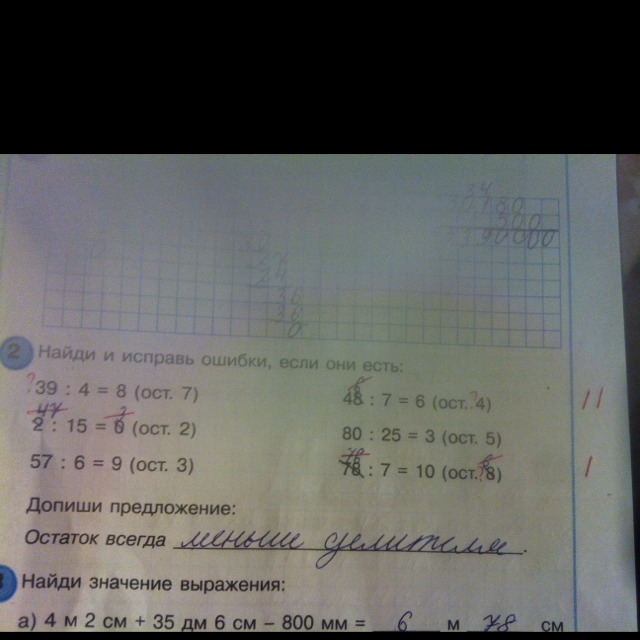 34
900
390000
30
24
36
36
0
2 Найди и исправь ошибки, если они есть:
39 : 4 = 8 (ост. 7)
48 : 7 = 6 (ост. 4)
11
2 : 15 = 0 (ост. 2)
80 : 25 = 3 (ост. 5)
57 : 6 = 9 (ост. 3)
78 : 7 = 10 (ост. 8)
1
Допиши предложение:
Остаток всегда меньше делителя.
Найди значение выражения:
а) 4 м 2 см + 35 дм 6 см – 800 мм = 6 м 78 см